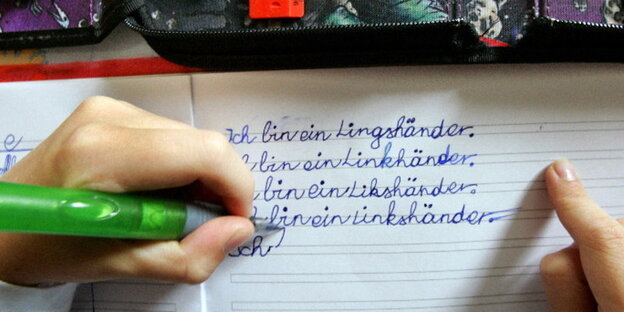 Ich bin ein Lingshänder.
bin ein Linkhänder.
bin ein Likshänder.
bin ein Linkshänder.
Ich